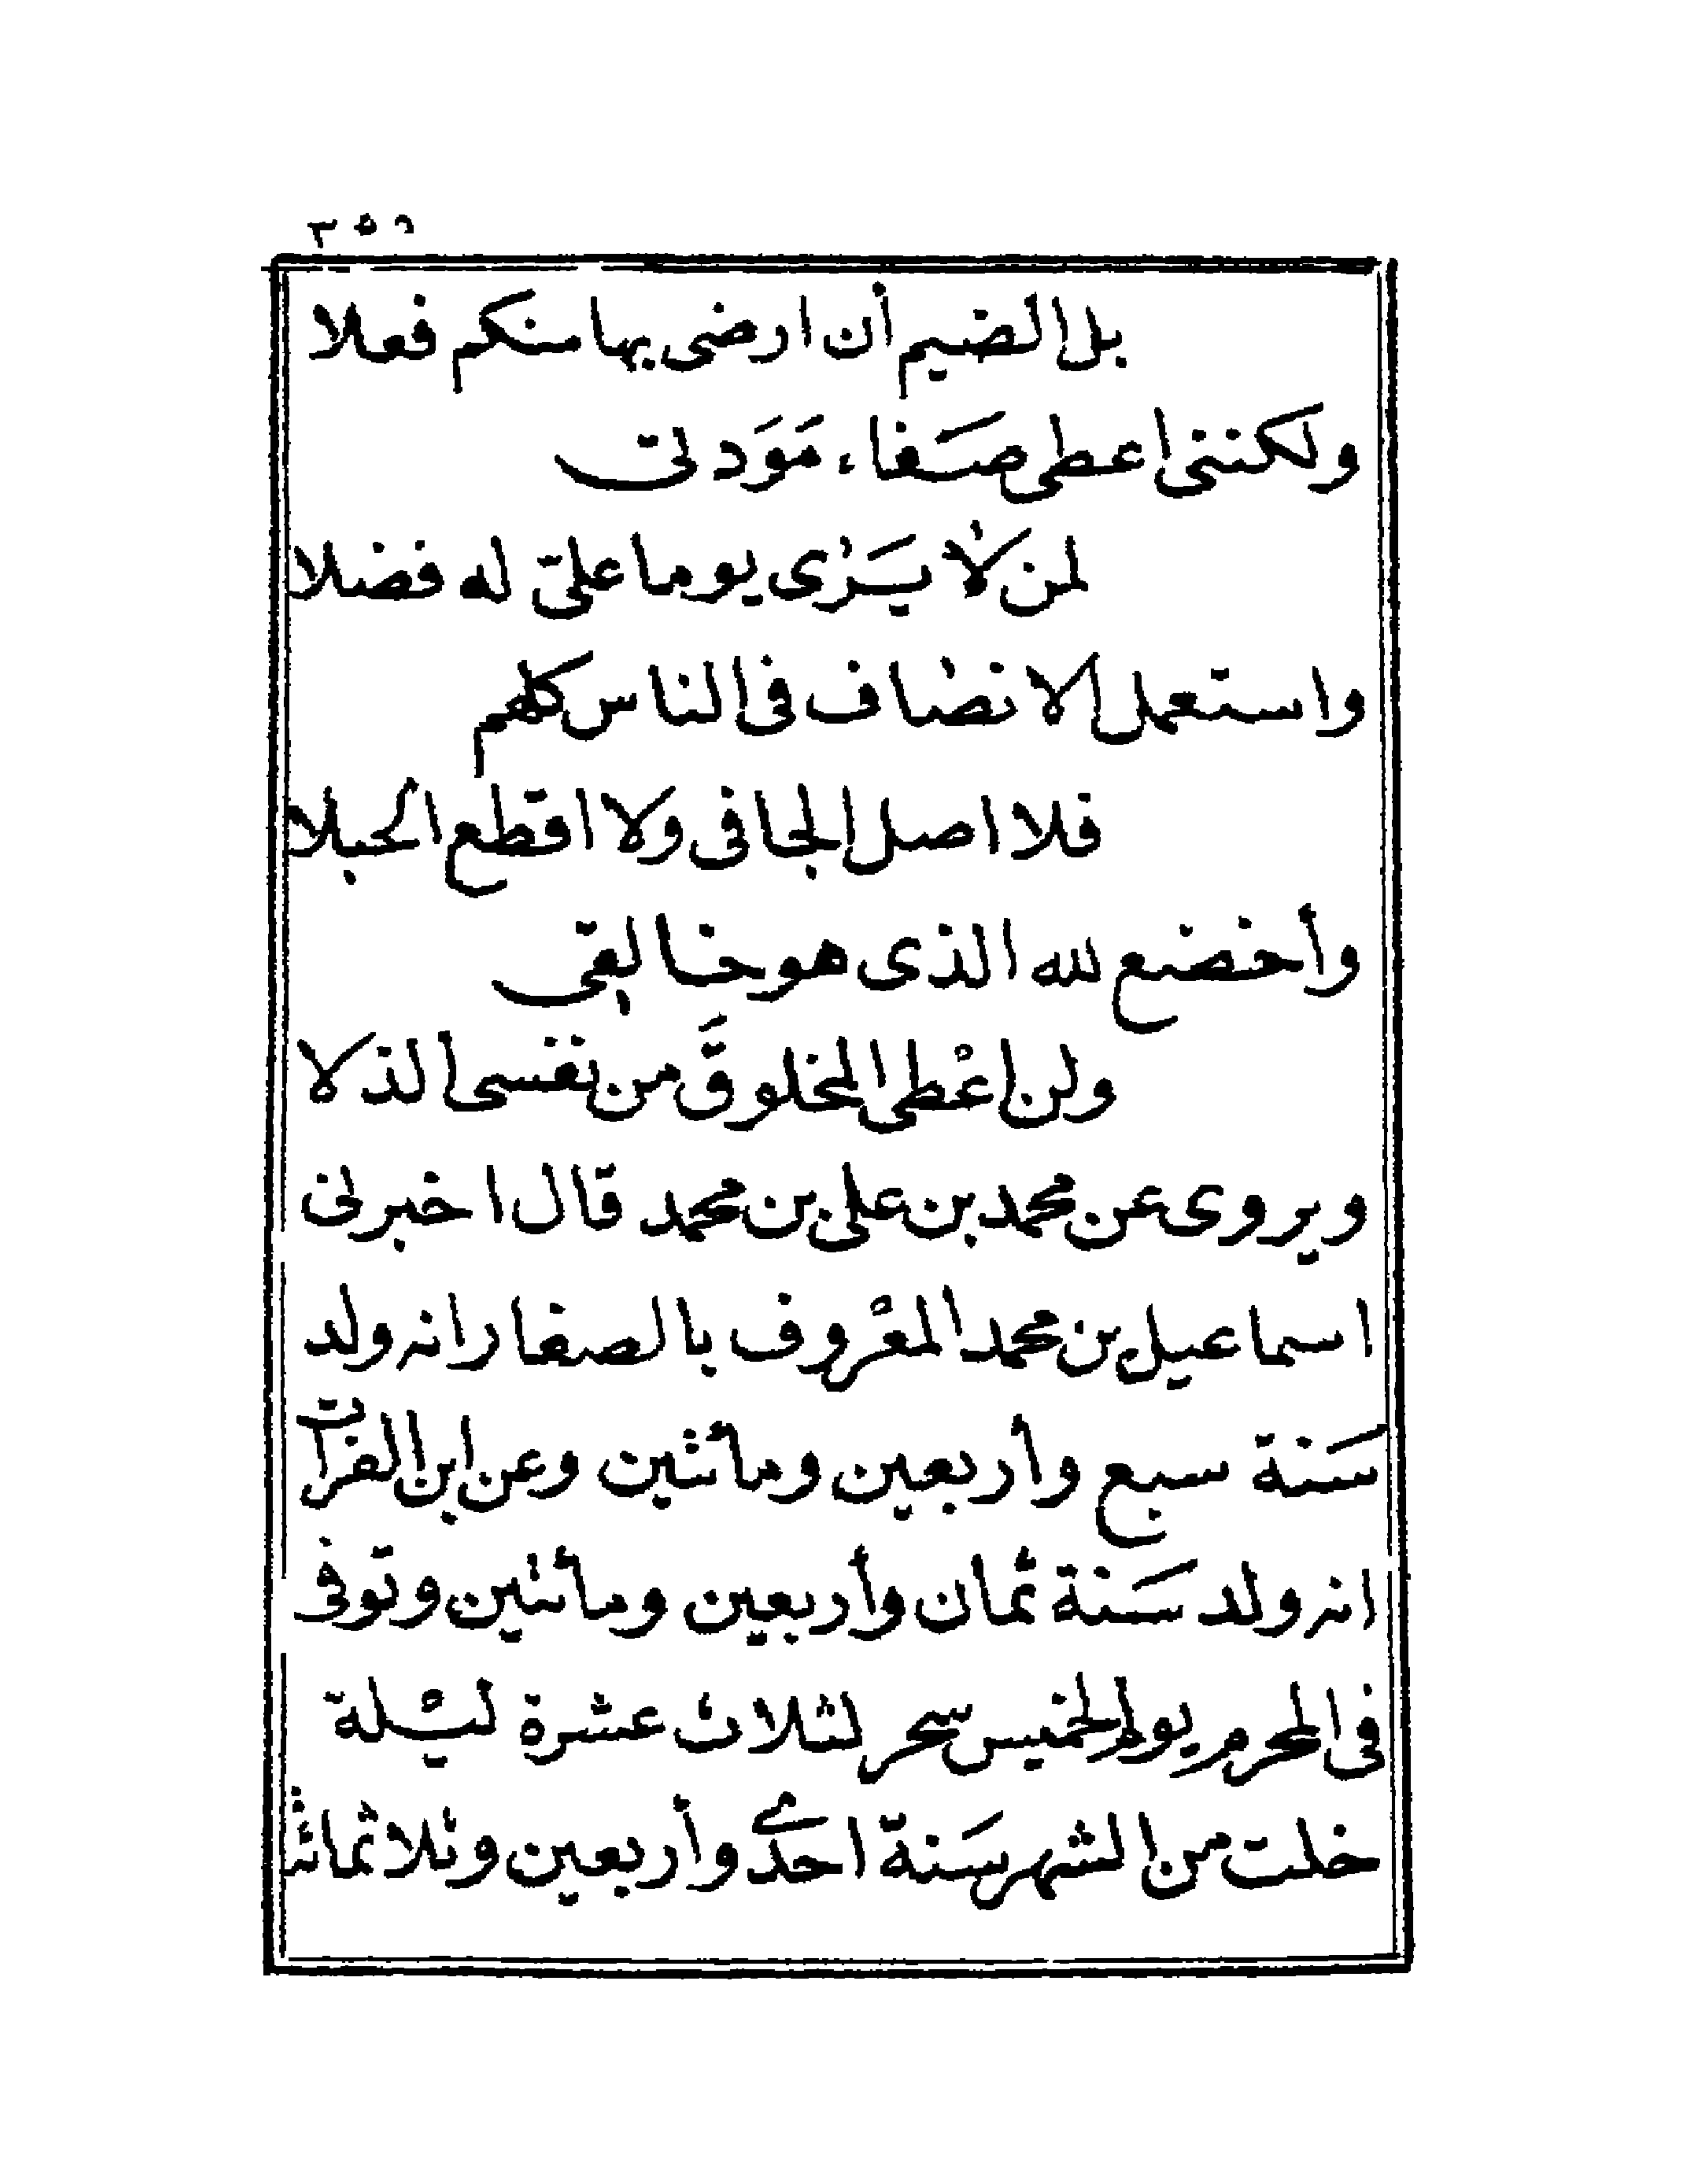 ٣٥٩
بل الضيم أن ارضى بها منكم فعلا
ولكننى اعطى صَفاء مَوَدتى
لمن لا يَرٰى يوما علىّ له فضلا
واستعمل الانصاف فى الناس كلهم
فلا اصل الجافى ولا اقطع الحبلا
وأخضع لله الذى هو خالِقى
ولن اعْطى المخلوقَ من نفسى الذلا
ويروى عن محمد بن على بن محمد قال اخبرنى
اسماعيل بن محمد المعْروف بالصفار انه ولد
سَنة سبع وأربعين ومأتين وعن ابن الفرات
انه ولد سَنة ثمان وأربعين ومأتين وتوفى
فى المحرم يوم الخميس سحر لثلاث عشرة ليْلة
خلت من الشهر سَنة احدٰى وأربعين وثلاثمائة